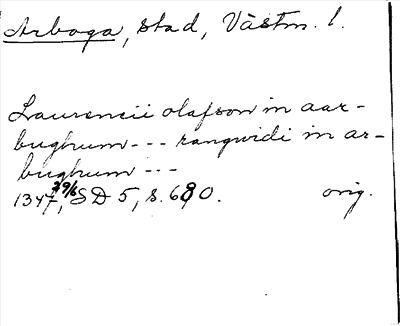 Arboga, stad, Västm. l.
Laurencii olafson in aar-
bughum --- rangwidi in ar-
bughum ---
1347 29/6, SD 5, s. 680. orig.